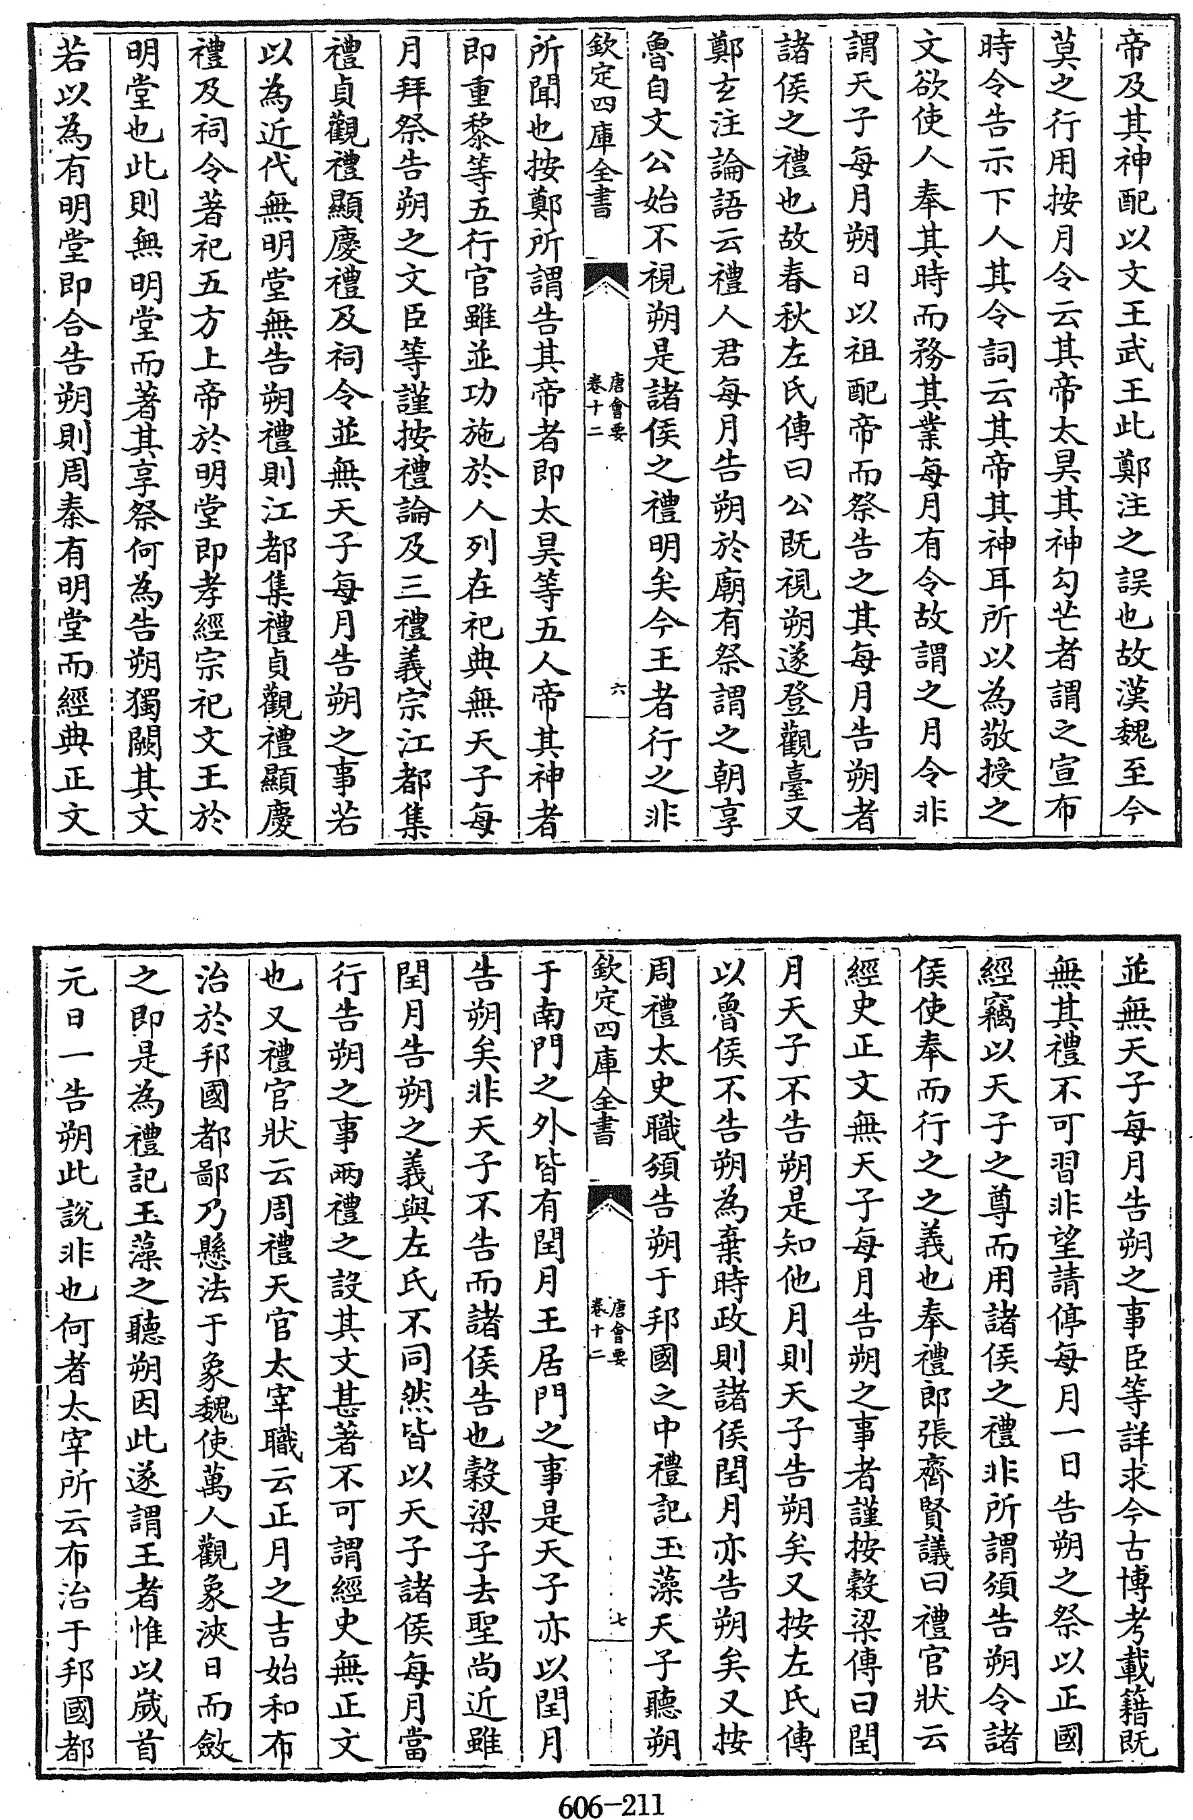 帝及其神配以文王武王此鄭注之誤也故漢魏至今
莫之行用按月令云其帝太昊其神勾芒者謂之宣布
時令告示下人其令詞云其帝其神耳所以為敬授之
文欲使人奉其時而務其業每月有令故謂之月令非
謂天子每月朔日以祖配帝而祭告之其每月告朔者
諸侯之禮也故春秋左氏傳曰公既視朔遂登觀臺又
鄭玄注論語云禮人君每月告朔於廟有祭謂之朝享
魯自文公始不視朔是諸侯之禮明矣今王者行之非
欽定四庫全書
唐會要
卷十二
六
所聞也按鄭所謂告其帝者即太昊等五人帝其神者
即重黎等五行官雖並功施於人列在祀典無天子每
月拜祭告朔之文臣等謹按禮論及三禮義宗江都集
禮貞觀禮顯慶禮及祠令並無天子每月告朔之事若
以為近代無明堂無告朔禮則江都集禮貞觀禮顯慶
禮及祠令著祀五方上帝於明堂即孝經宗祀文王於
明堂也此則無明堂而著其享祭何為告朔獨闕其文
若以為有明堂即合告朔則周秦有明堂而經典正文
並無天子每月告朔之事臣等詳求今古博考載籍既
無其禮不可習非望請停每月一日告朔之祭以正國
經竊以天子之尊而用諸侯之禮非所謂頒告朔令諸
侯使奉而行之之義也奉禮郎張齊賢議曰禮官狀云
經史正文無天子每月告朔之事者謹按穀梁傳曰閏
月天子不告朔是知他月則天子告朔矣又按左氏傳
以魯侯不告朔為棄時政則諸侯閏月亦告朔矣又按
周禮太史職頒告朔于邦國之中禮記玉藻天子聽朔
欽定四庫全書
唐會要
卷十二
七
于南門之外皆有閏月王居門之事是天子亦以閏月
告朔矣非天子不告而諸侯告也穀梁子去聖尚近雖
閏月告朔之義與左氏不同然皆以天子諸侯每月當
行告朔之事兩禮之設其文甚著不可謂經史無正文
也又禮官狀云周禮天官太宰職云正月之吉始和布
治於邦國都鄙乃懸法于象魏使萬人觀象浹日而斂
之即是為禮記玉藻之聽朔因此遂謂王者惟以歲首
元日一告朔此說非也何者太宰所云布治于邦國都
606-211